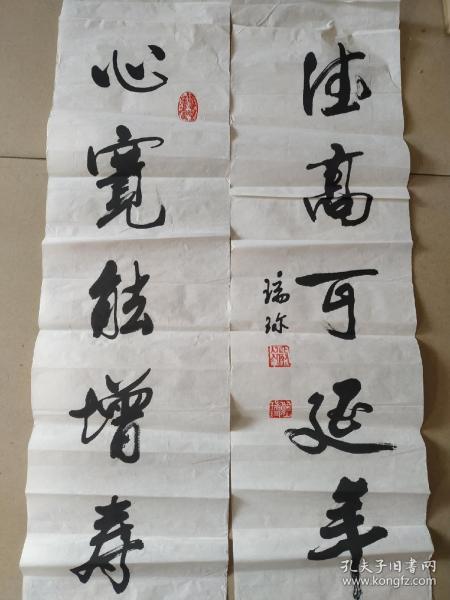 德高可延年
心寬能增寿
瑞弥
孔夫子旧书网
www.kongfz.com